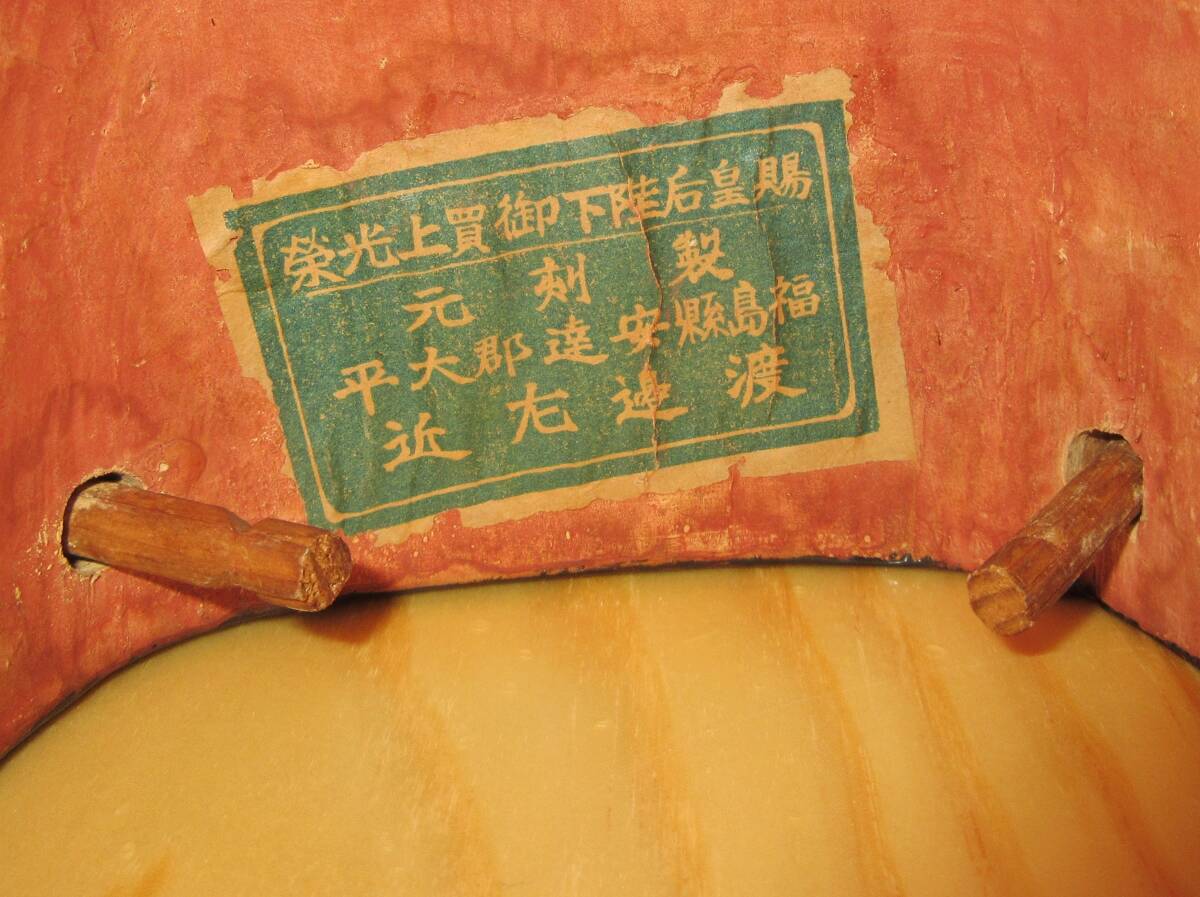 賜皇后陛下御買上光榮
製刻元
福島縣安達郡大平
渡邊左近